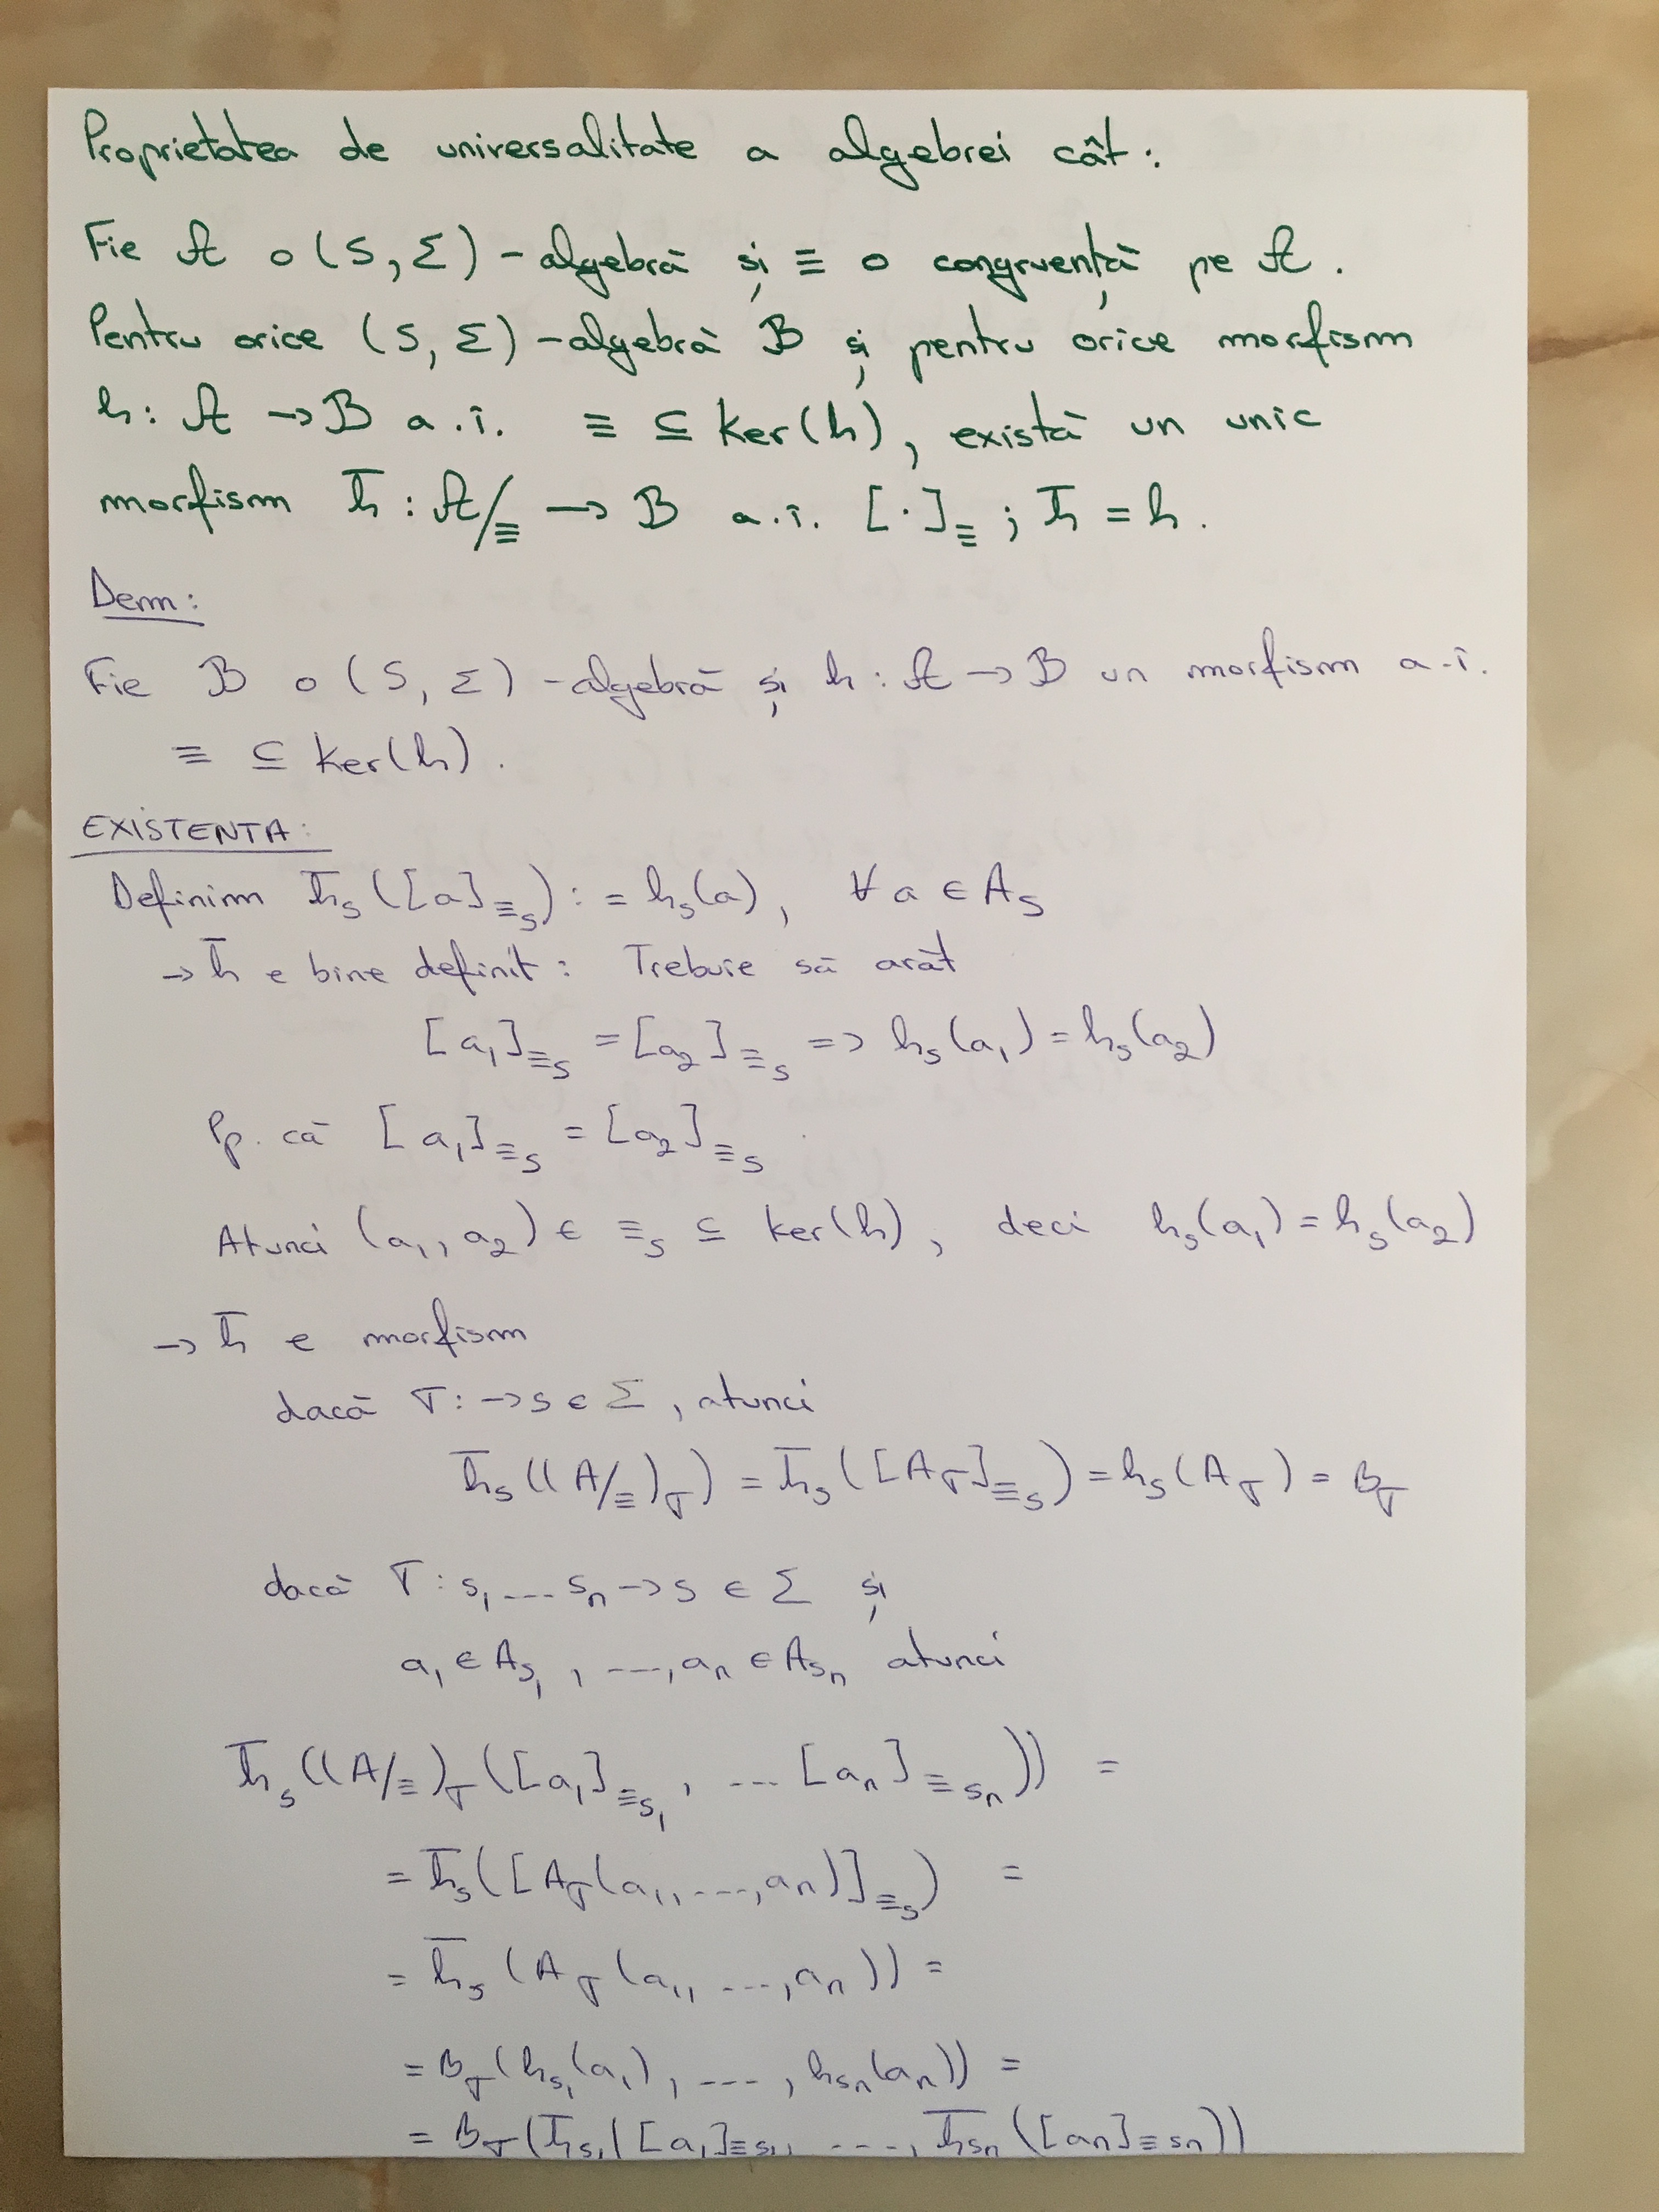 Proprietatea de universalitate a algebrei cât:
Fie 𝒜 o (S, Σ) - algebră și ≡ o congruență pe 𝒜.
Pentru orice (S, Σ) - algebră ℬ și pentru orice morfism
h: 𝒜 → ℬ a.î. ≡ ⊆ Ker(h), există un unic
morfism h̅ : 𝒜/≡ → ℬ a.î. [·]≡ ; h̅ = h.
Dem:
Fie ℬ o (S, Σ) - algebră și h : 𝒜 → ℬ un morfism a.î.
≡ ⊆ Ker(h).
EXISTENTA:
Definim h̅_s([a]≡_s) := h_s(a), ∀ a ∈ A_s
→ h̅ e bine definit: Trebuie să arăt
[a₁]≡_s = [a₂]≡_s => h_s(a₁) = h_s(a₂)
Pp. că [a₁]≡_s = [a₂]≡_s
Atunci (a₁, a₂) ∈ ≡_s ⊆ Ker(h), deci h_s(a₁) = h_s(a₂)
→ h̅ e morfism
dacă σ: → s ∈ Σ, atunci
h̅_s((A/≡)_σ) = h̅_s([A_σ]≡_s) = h_s(A_σ) = B_σ
dacă σ: s₁ ... s_n → s ∈ Σ și
a₁ ∈ A_s₁, ..., a_n ∈ A_s_n atunci
h̅_s((A/≡)_σ([a₁]≡_s₁, ... [a_n]≡_s_n)) =
= h̅_s([A_σ(a₁, ..., a_n)]≡_s) =
= h̅_s(A_σ(a₁, ..., a_n)) =
= B_σ(h_s₁(a₁), ..., h_s_n(a_n)) =
= B_σ(h̅_s₁([a₁]≡_s₁, ..., h̅_s_n([a_n]≡_s_n))